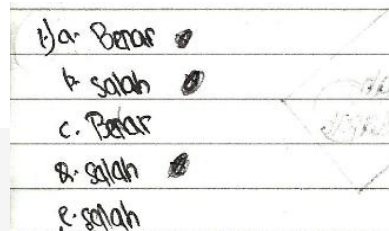 1.) a. Benar
b. salah
c. Benar
d. salah
e. salah